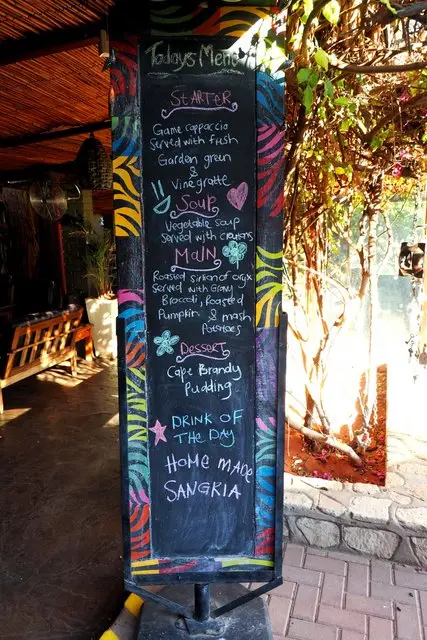 Todays Menu
STARTER
Game cappaccio
Served with fresh
Garden green
&
Vinegratte
SOUP
Vegetable soup
Served with croutons
MAIN
Roasted Sirlion of oryx
Served with Gravy
Broccoli, Roasted
Pumpkin & mash
Potatoes
Dessert
Cape Brandy
Pudding
DRINK OF
THE DAY
HOME MADE
SANGRIA